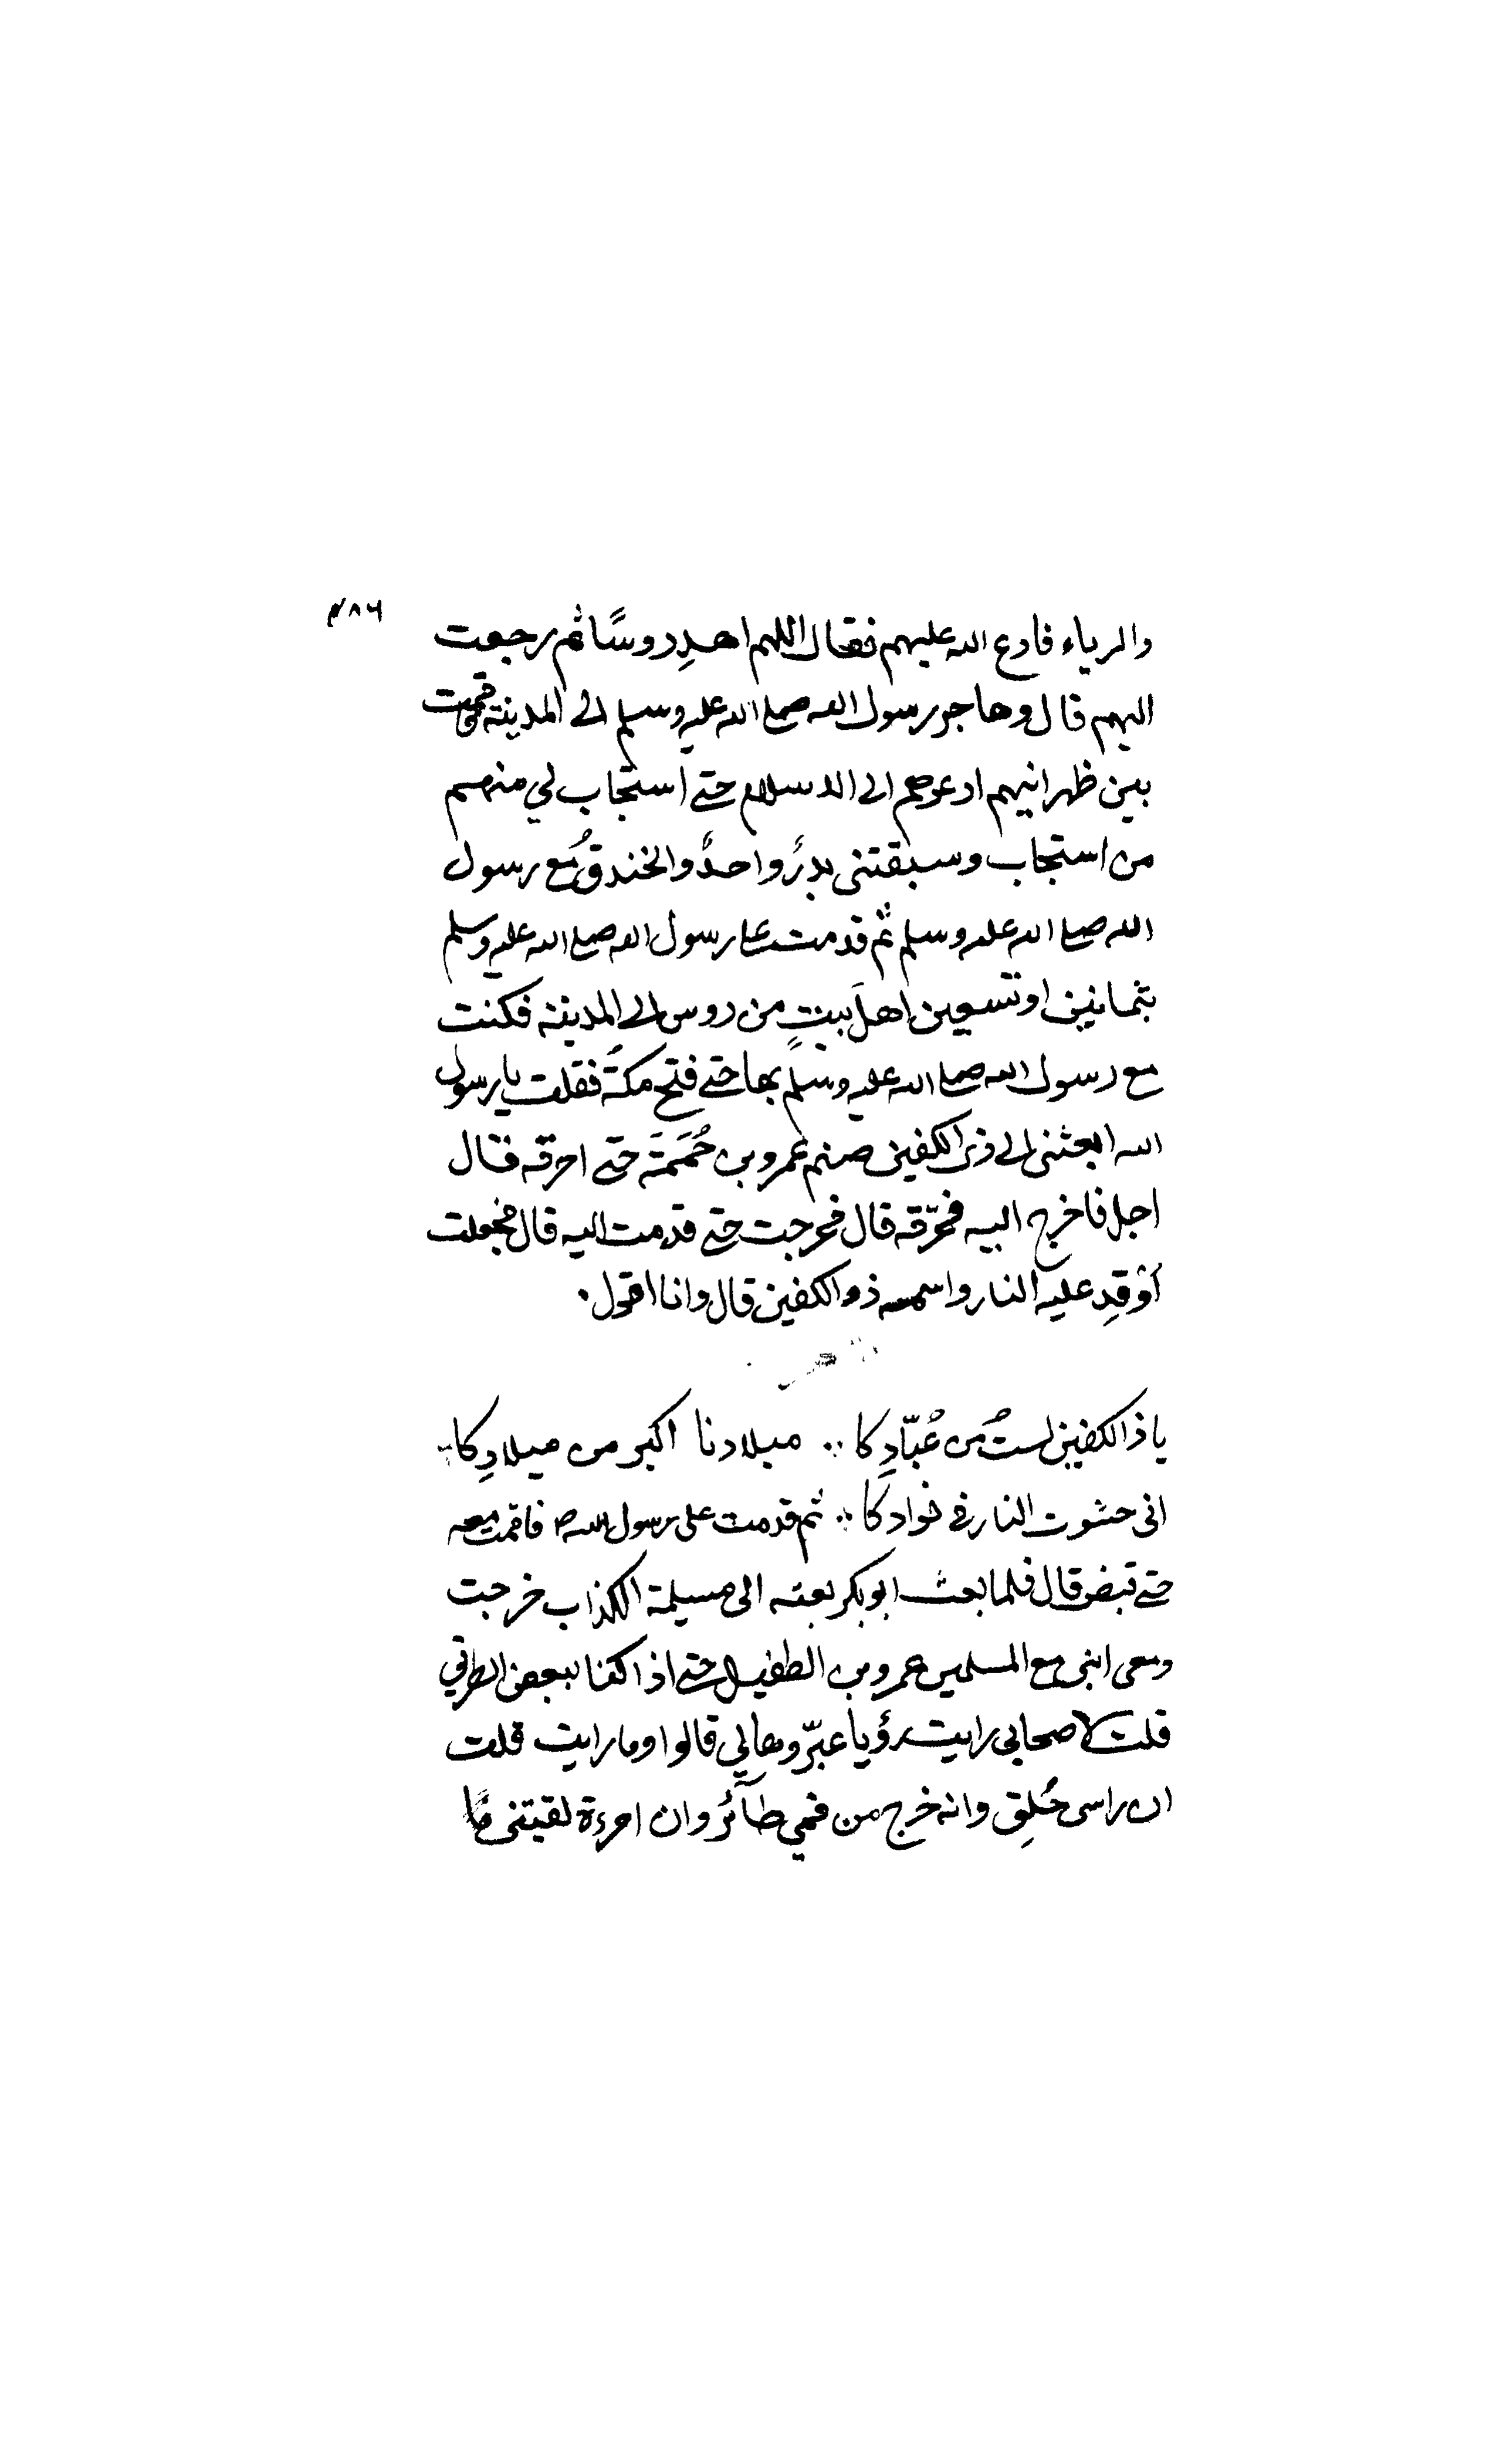 ٤٨٦
والرياء فادع الله عليهم فقال اللهم اهدِ دوسًا ثم رجعت
اليهم قال وهاجر رسول الله صلى الله عليه وسلم الى المدينة فاقمت
بين ظهرانيهم ادعوهم الى الاسلام حتى استجاب لي منهم
من استجاب وسبقتنى بدرٌ واحدٌ والخندقُ مع رسول
الله صلى الله عليه وسلم ثم قدمت على رسول الله صلى الله عليه وسلم
بثمانين او تسعين اهلَ بيتٍ من دوس الى المدينة فكنت
مع رسول الله صلى الله عليه وسلم بها حتى فتح مكةَ فقلت يا رسول
الله ابعثنى الى ذى الكفين صنم عمرو بن حُمَمَة حتى احرقه فقال
اجل فاخرج اليه فحرّقه قال فخرجت حتى قدمت اليه قال فجعلت
أوْقِد عليه النار واسمه ذو الكفين قال وانا اقول .
يا ذا الكفين لستُ من عُبّادِكا ∴ ميلادنا اكبر من ميلادِكا ∴
انى حشوت النار فى فوادكا ∴ ثم قدمت على رسول الله ص فاقمت معه
حتى قبض قال فلما بعث ابو بكر بعثه الى مسيلمة الكذاب خرجت
ومعى ابنى مع المسلمين عمرو بن الطفيل حتى اذا كنا ببعض الطريق
قلت لاصحابى رايت رؤيا عبّروها لي قالوا وما رايت قلت
ان راسى حُلِق وانه خرج من فمي طآئرٌ وان امرءة لقيتنى